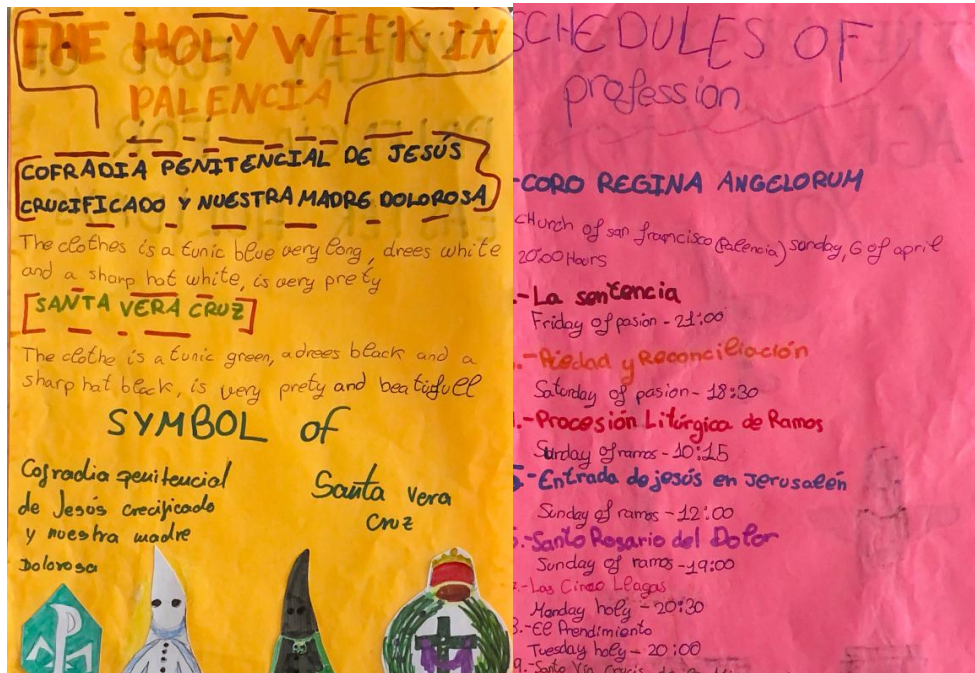 THE HOLY WEEK IN
PALENCIA
COFRADIA PENITENCIAL DE JESÚS
CRUCIFICADO Y NUESTRA MADRE DOLOROSA
The clothes is a tunic blue very long, drees white
and a sharp hat white, is very prety
SANTA VERA CRUZ
The clothe is a tunic green, a drees black and a
sharp hat black, is very prety and beatifull
SYMBOL of
Cofradia penitencial
de Jesús crecificado
y nuestra madre
Dolorosa
Santa vera
cruz
SCHEDULES OF
profession
-CORO REGINA ANGELORUM
CHurch of san francisco (Palencia) sunday, 6 of april
20:00 Hours
.-La sentencia
Friday of pasion - 21:00
.-Piedad y Reconciliación
Saturday of pasion - 18:30
.-Procesión Litúrgica de Ramos
Sunday of ramos - 10:15
5.-Entrada de jesús en Jerusalén
Sunday of ramos - 12:00
.-Santo Rosario del Dolor
Sunday of ramos - 19:00
.-Las Cinco Llagas
Monday holy - 20:30
8.-El Prendimiento
Tuesday holy - 20:00
9.-Santo Vía Crucis de